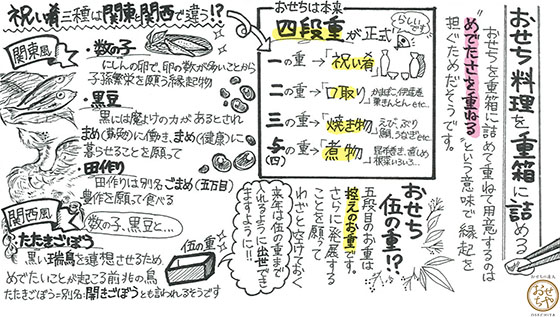 おせち料理を重箱に詰める
おせちを重箱に詰めて重ねて用意するのは
"めでたさを重ねる"という意味で縁起を
担ぐためだそうです。
おせちは本来
四段重が正式
らしいです
一の重→「祝い肴」
二の重→「口取り」
かまぼこ、伊達巻
栗きんとんetc...
三の重→「焼き物」
えび、ぶり
鯛、うなぎetc...
与の重→「煮物」
(四)
昆布巻き、煮しめ
根菜いろいろ...
おせち
伍の重!?
五段目のお重は
控えのお重です。
さらに発展する
ことを願って
わざと空けておく
来年は伍の重まで
入れるように出世でき
ますように!!
伍の重
祝い肴三種は関東と関西で違う!?
関東風
・数の子
にしんの卵、卵の数が多いことから
子孫繁栄を願う縁起物
・黒豆
黒には魔よけの力があるとされ
まめ(勤勉)に働き、まめ(健康)に
暮らせることを願って
・田作り
田作りは別名ごまめ(五万目)
豊作を願って食べる
関西風
数の子、黒豆と...
・たたきごぼう
黒い瑞鳥を連想させるため
めでたいことが起こる前兆の鳥
たたきごぼう=別名:開きごぼうとも言われるそうです
おせちの達人
おせちや
OSECHIYA